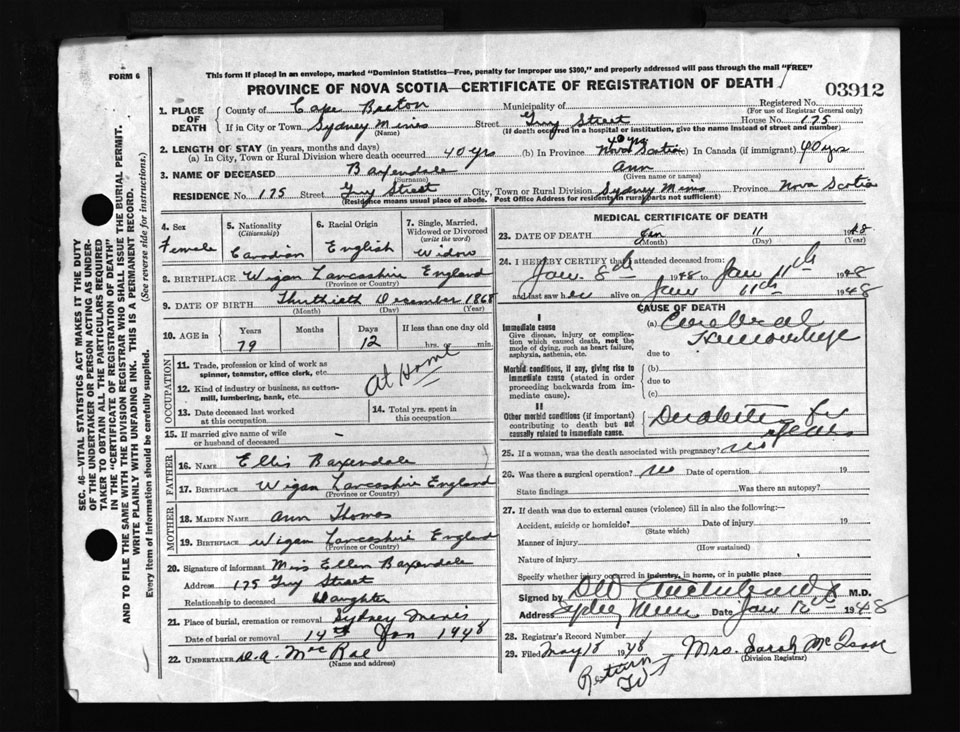 FORM 6
This form if placed in an envelope, marked "Dominion Statistics—Free, penalty for improper use $300," and properly addressed will pass through the mail "FREE"
PROVINCE OF NOVA SCOTIA—CERTIFICATE OF REGISTRATION OF DEATH
03912
1. PLACE OF DEATH
County of Cape Breton Municipality of Registered No.
(For use of Registrar General only)
If in City or Town Sydney Mines Street Guy Street House No. 175
(Name) (If death occurred in a hospital or institution, give the name instead of street and number)
2. LENGTH OF STAY (in years, months and days)
40 yrs
(a) In City, Town or Rural Division where death occurred 40 yrs (b) In Province Nova Scotia (c) In Canada (if immigrant) 40 yrs
3. NAME OF DECEASED Baxendale Ann
(Surname) (Given name or names)
RESIDENCE No. 175 Street Guy Street City, Town or Rural Division Sydney Mines Province Nova Scotia
(Residence means usual place of abode. Post Office Address for residents in rural parts not sufficient)
4. Sex
Female
5. Nationality
(Citizenship)
Canadian
6. Racial Origin
English
7. Single, Married, Widowed or Divorced
(write the word)
Widow
8. BIRTHPLACE Wigan Lancashire England
(Province or Country)
9. DATE OF BIRTH Thirtieth December 1868
(Month) (Day) (Year)
10. AGE in Years Months Days If less than one day old
79 12 hrs. or min.
OCCUPATION
11. Trade, profession or kind of work as spinner, teamster, office clerk, etc.
At Home
12. Kind of industry or business, as cotton-mill, lumbering, bank, etc.
13. Date deceased last worked at this occupation
14. Total yrs. spent in this occupation
15. If married give name of wife or husband of deceased –
FATHER
16. NAME Ellis Baxendale
17. BIRTHPLACE Wigan Lancashire England
(Province or Country)
MOTHER
18. MAIDEN NAME Ann Thomas
19. BIRTHPLACE Wigan Lancashire England
(Province or Country)
20. Signature of informant Miss Ellen Baxendale
Address 175 Guy Street
Relationship to deceased Daughter
21. Place of burial, cremation or removal Sydney Mines
Date of burial or removal 14th Jan 1948
22. UNDERTAKER D. A. MacRae
(Name and address)
MEDICAL CERTIFICATE OF DEATH
23. DATE OF DEATH Jan 11 1948
(Month) (Day) (Year)
24. I HEREBY CERTIFY that I attended deceased from:
Jan. 8th 1948 to Jan 11th 1948
and last saw her alive on Jan 11th 1948
CAUSE OF DEATH
I
Immediate cause
Give disease, injury or complication which caused death, not the mode of dying, such as heart failure, asphyxia, asthenia, etc.
(a) Cerebral
Hemorrhage
due to
Morbid conditions, if any, giving rise to immediate cause (stated in order proceeding backwards from immediate cause).
(b)
due to
(c)
II
Other morbid conditions (if important) contributing to death but not causally related to immediate cause.
Diabetes for years
25. If a woman, was the death associated with pregnancy? no
26. Was there a surgical operation? no Date of operation 19
State findings Was there an autopsy?
27. If death was due to external causes (violence) fill in also the following:—
Accident, suicide or homicide? Date of injury 19
(State which)
Manner of injury
(How sustained)
Nature of injury
Specify whether injury occurred in industry, in home, or in public place
Signed by M.D.
Address Sydney Mines Date Jan 12th 1948
28. Registrar's Record Number
29. Filed May 18 1948 Mrs. Sarah McIsaac
(Division Registrar)
Return
SEC. 46—VITAL STATISTICS ACT MAKES IT THE DUTY
OF THE UNDERTAKER OR PERSON ACTING AS UNDER-
TAKER TO OBTAIN ALL THE PARTICULARS REQUIRED
IN THE "CERTIFICATE OF REGISTRATION OF DEATH"
AND TO FILE THE SAME WITH THE DIVISION REGISTRAR WHO SHALL ISSUE THE BURIAL PERMIT.
WRITE PLAINLY WITH UNFADING INK. THIS IS A PERMANENT RECORD.
Every item of information should be carefully supplied. (See reverse side for instructions.)